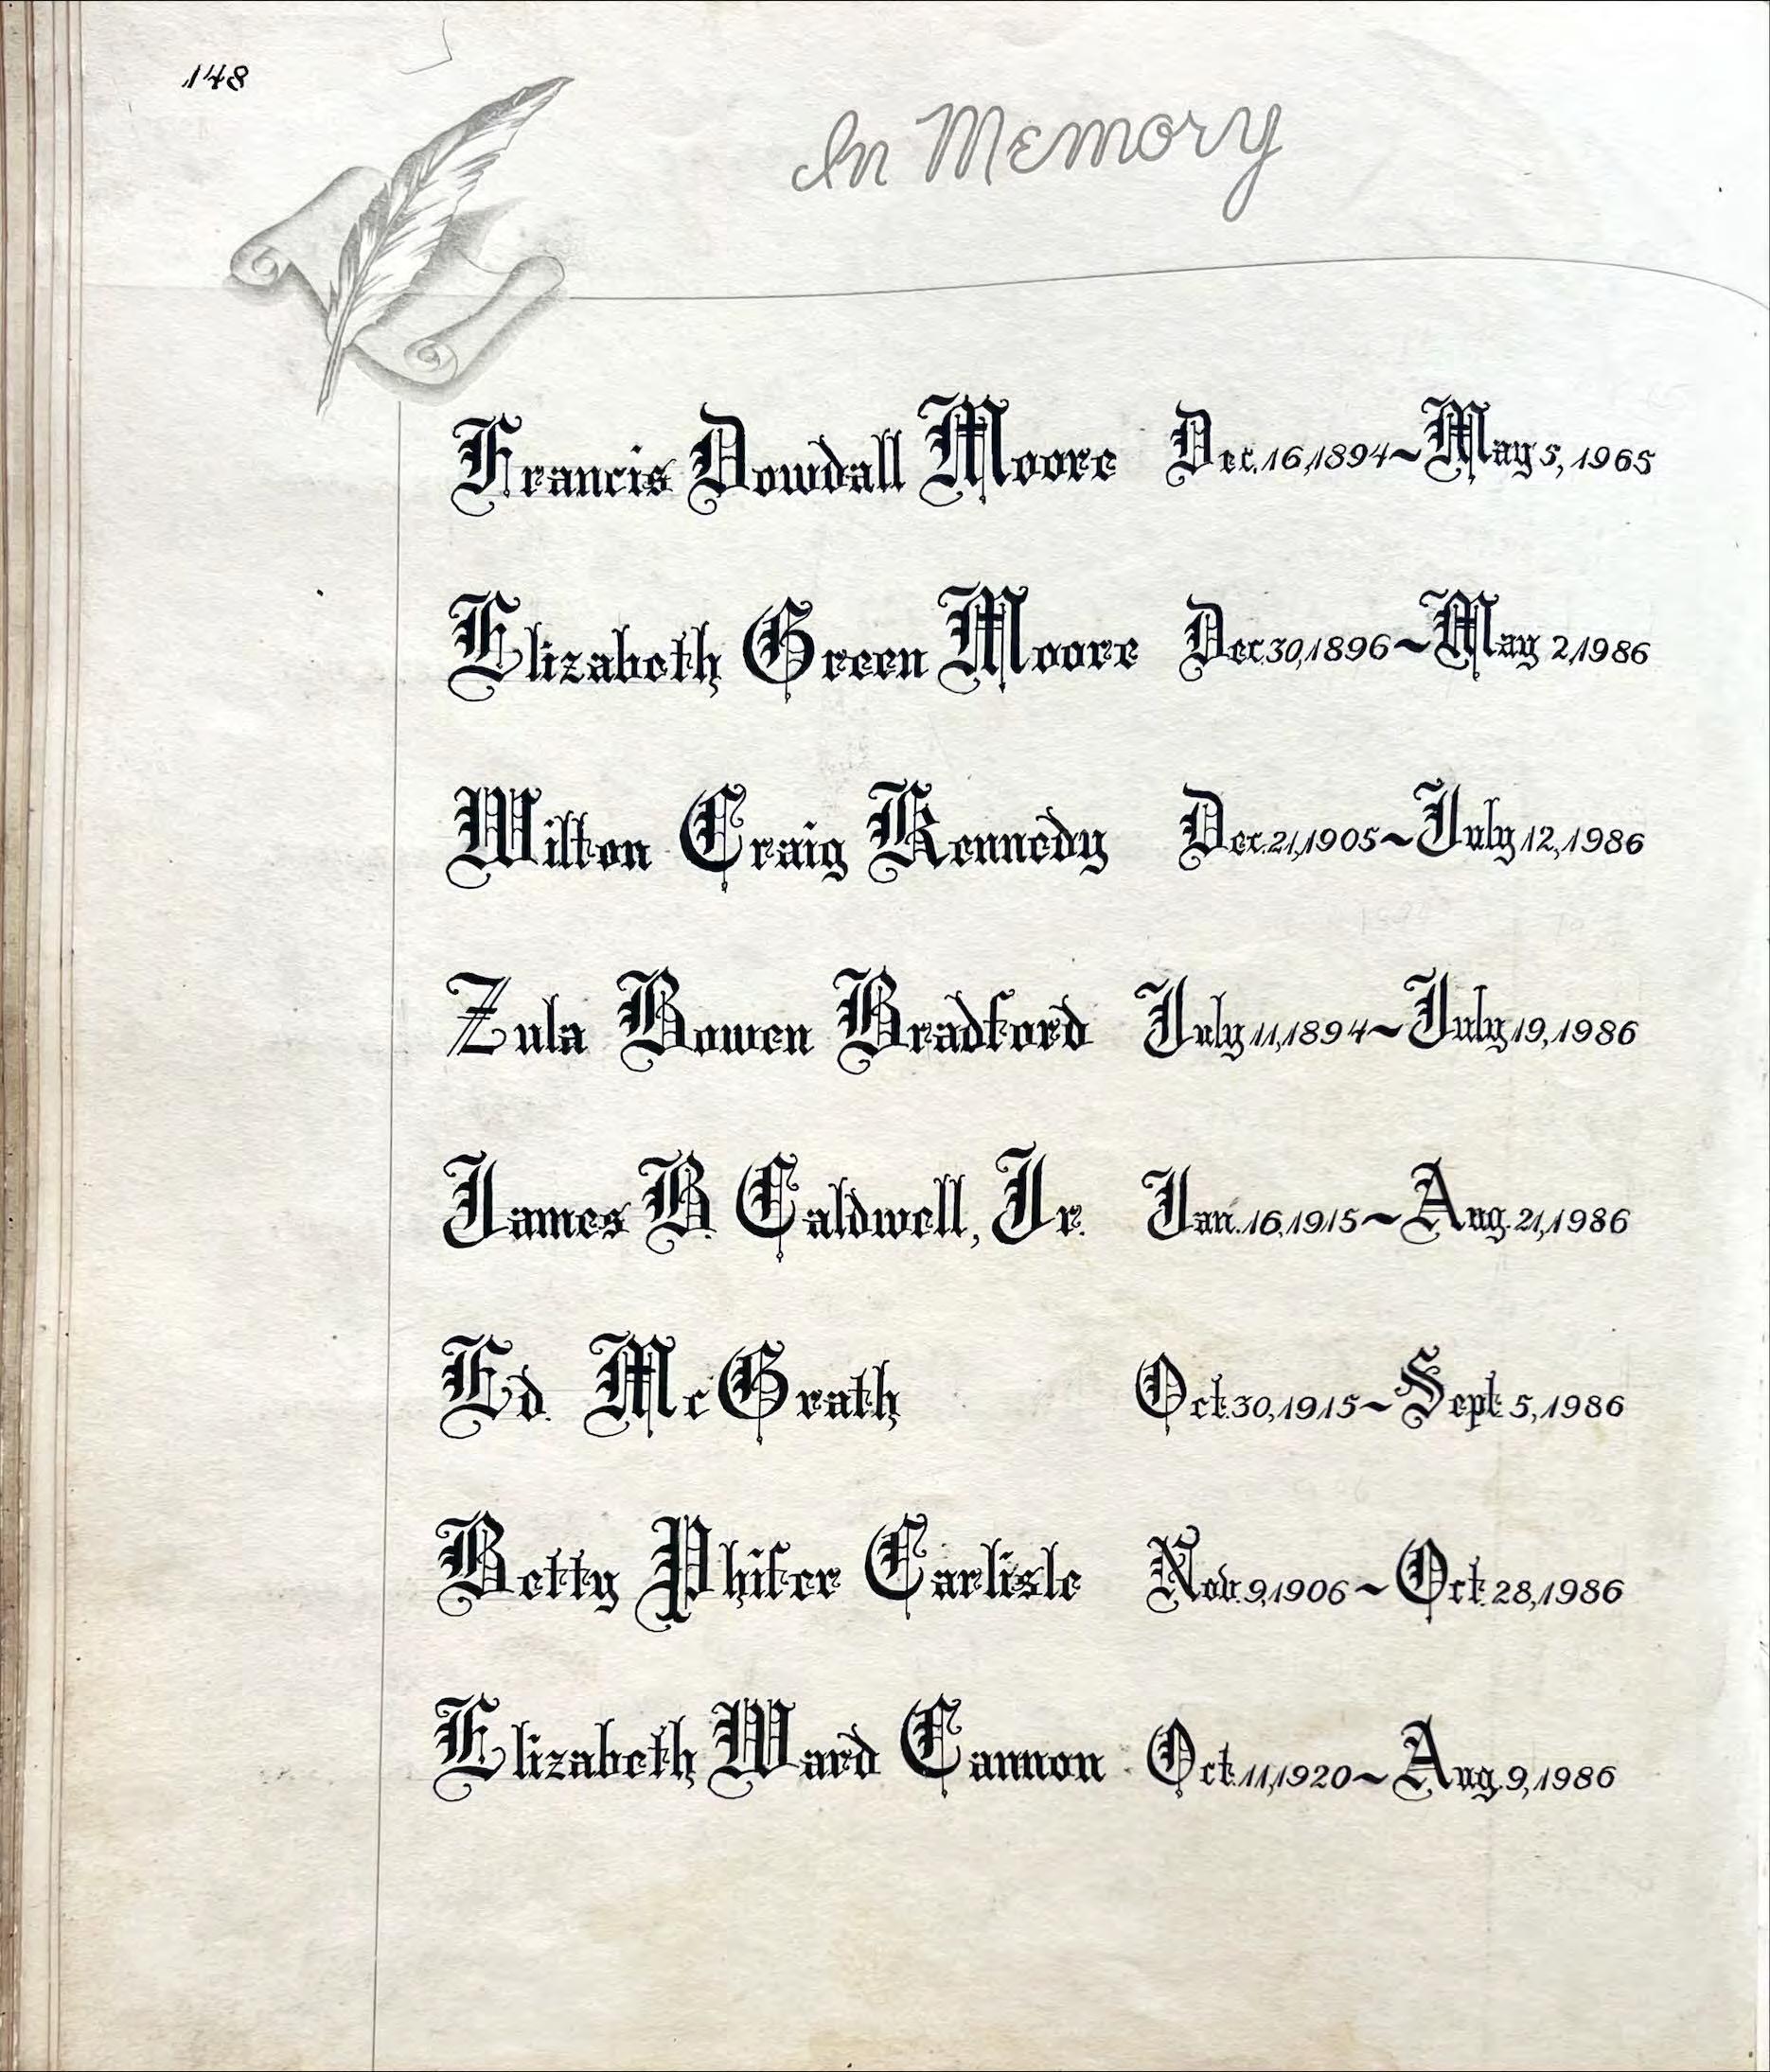 148
In Memory
Francis Dowdall Moore Dec. 16, 1894 ~ May 5, 1965
Elizabeth Green Moore Dec. 30, 1896 ~ May 2, 1986
Wilton Craig Kennedy Dec. 21, 1905 ~ July 12, 1986
Zula Bowen Bradford July 11, 1894 ~ July 19, 1986
James B. Caldwell, Jr. Jan. 16, 1915 ~ Aug. 21, 1986
Ed. McGrath Oct. 30, 1915 ~ Sept. 5, 1986
Betty Phifer Carlisle Nov. 9, 1906 ~ Oct. 28, 1986
Elizabeth Ward Cannon Oct. 11, 1920 ~ Aug. 9, 1986